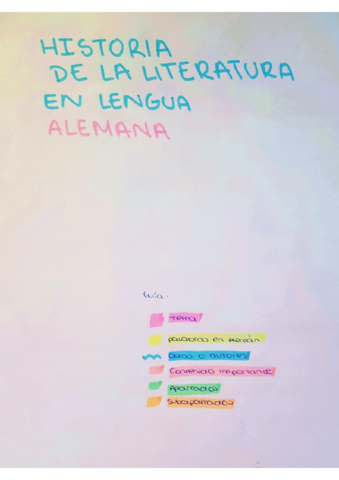 HISTORIA
DE LA LITERATURA
EN LENGUA
ALEMANA
Guía:
Tema
palabras en alemán
Obras o autores
Contenido importante
Apartados
Subapartados